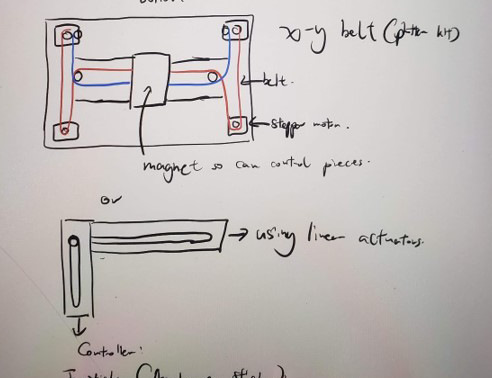 x-y belt (plotter kit)
belt.
stepper motor.
magnet so can control pieces.
or
using linear actuators.
Controller: